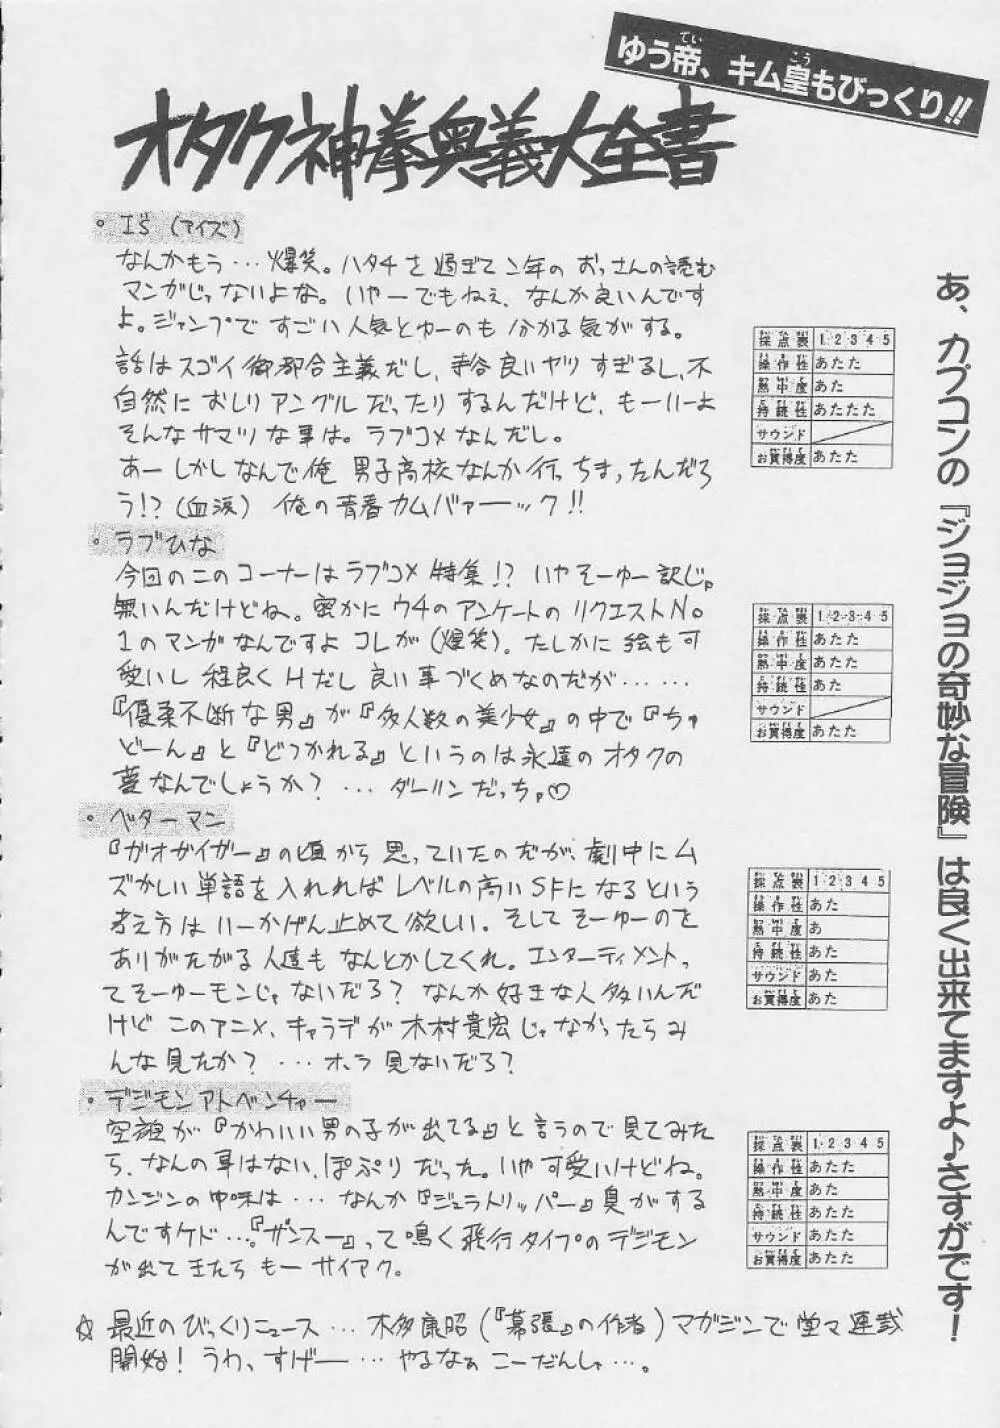 ゆう帝、キム皇もびっくり!!
オタク神拳奥義大全書
・I's(アイズ)
なんかもう…爆笑。ハタチを過ぎて2年のおっさんの読む
マンガじゃないよな。いやーでもねぇ、なんか良いんです
よ。ジャンプですごい人気とゆーのも分かる気がする。
話はスゴイ御都合主義だし、寺谷良いヤツすぎるし、不
自然におしりアングルだったりするんだけど、もーいーよ
そんなサマツな事は。ラブコメなんだし。
あーしかしなんで俺 男子高校なんか行っちまったんだろ
う!?(血涙) 俺の青春カムバァーック!!
採点表 1 2 3 4 5
操作性 あたた
熱中度 あた
持続性 あたたた
サウンド
お買得度 あたた
・ラブひな
今回のこのコーナーはラブコメ特集!? いやそーゆー訳じゃ
無いんだけどね。密かにウチのアンケートのリクエストNo
1のマンガなんですよコレが(爆笑)。たしかに絵も可
愛いし程良くHだし良い事づくめなのだが……
『優柔不断な男』が『多人数の美少女』の中で『ちゅ
どーん』と『どつかれる』というのは永遠のオタクの
夢なんでしょうか?…ダーリンだっちゃ♡
採点表 1 2 3 4 5
操作性 あたた
熱中度 あたた
持続性 あた
サウンド
お買得度 あたた
・ベターマン
『ガオガイガー』の頃から思っていたのだが、劇中にム
ズかしい単語を入れればレベルの高いSFになるという
考え方はいーかげん止めて欲しい。そしてそーゆーのを
ありがたがる人達もなんとかしてくれ。エンターティメントっ
てそーゆーモンじゃないだろ?なんか好きな人多いんだ
けどこのアニメ、キャラデが木村貴宏じゃなかったらみ
んな見たか?…ホラ見ないだろ?
採点表 1 2 3 4 5
操作性 あた
熱中度 あ
持続性 あた
サウンド あた
お買得度 あた
・デジモンアドベンチャー
空旗が『かわいい男の子が出てる』と言うので見てみた
ら、なんの事はない、ぽぷりだった。いや可愛いけどね。
カンジンの中味は…なんか『ジュラトリッパー』臭がする
んですケド…。『ザンスー』って鳴く飛行タイプのデジモン
が出てきたらもーサイアク。
採点表 1 2 3 4 5
操作性 あたた
熱中度 あた
持続性 あたた
サウンド あたた
お買得度 あたた
☆ 最近のびっくりニュース…木多康昭(『幕張』の作者)マガジンで堂々連載
開始!うわ、すげー…やるなぁこーだんしゃ…。
あ、カプコンの『ジョジョの奇妙な冒険』は良く出来てますよ♪さすがです!